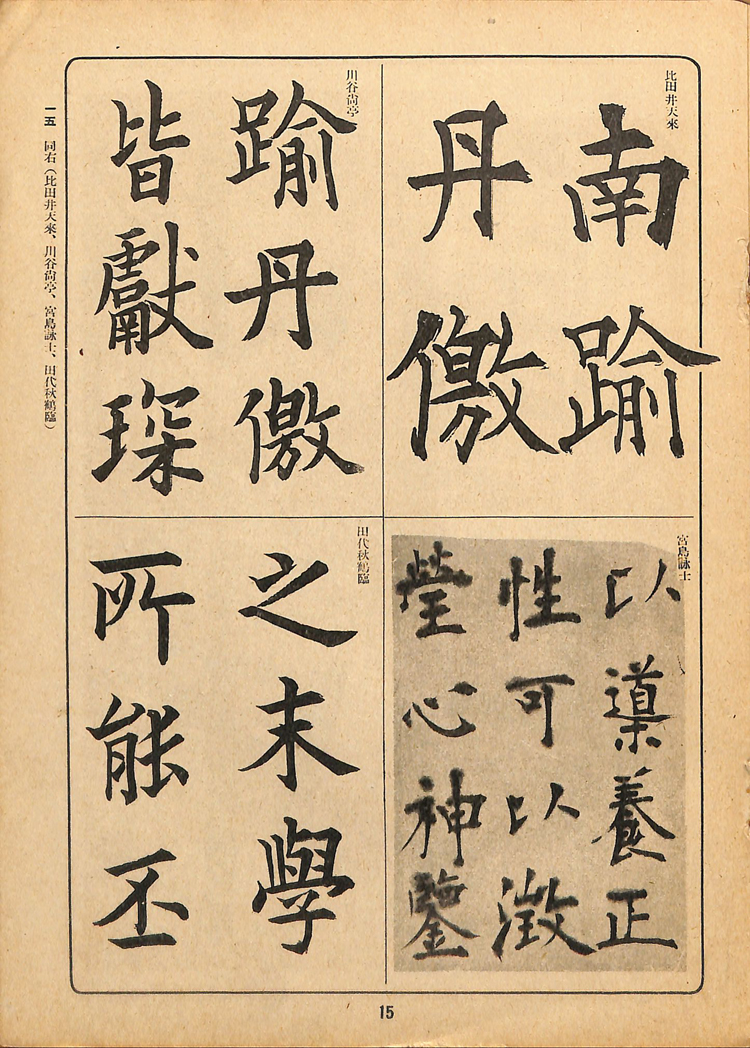 比田井天來
南踰
丹儌
川谷尙亭
踰丹儌
皆獻琛
宮島詠士
以導養正
性可以澂
瑩心神鑒
田代秋鶴臨
之末學
所能丕
一五 同右(比田井天來、川谷尙亭、宮島詠士、田代秋鶴臨)
15